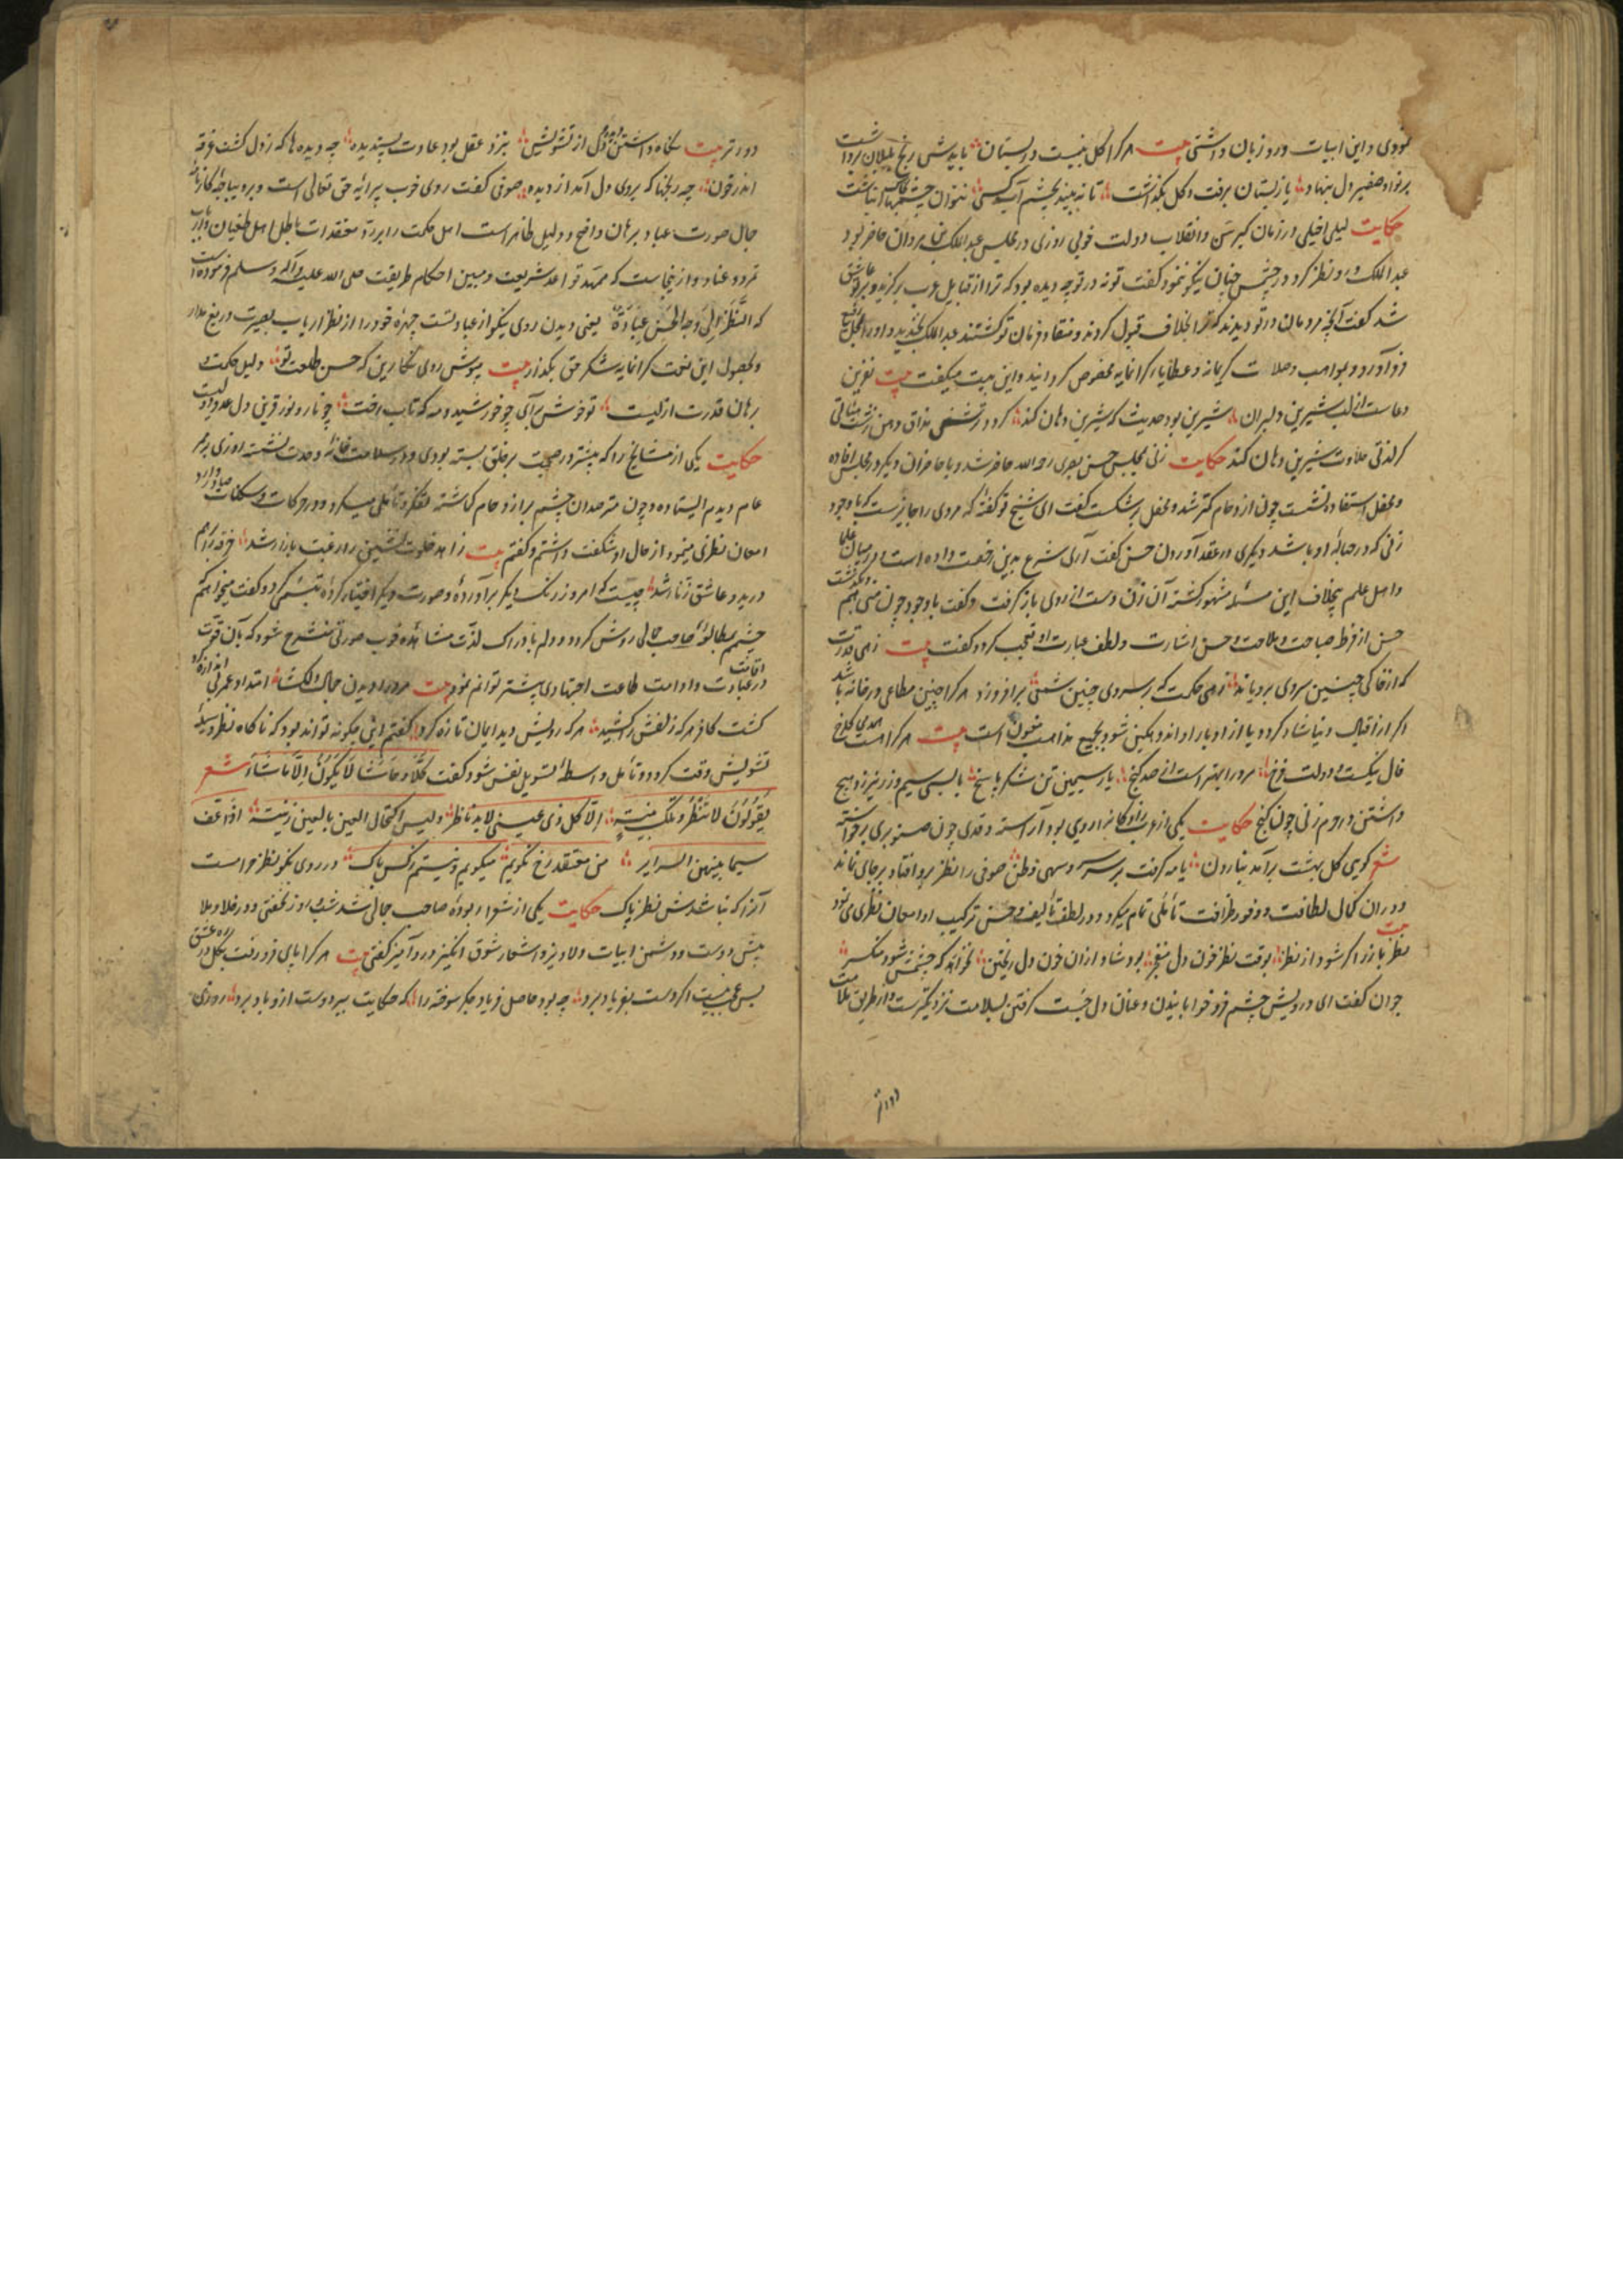 نمودی و این ابیات ورد زبان داشتی بیت هر کرا گل نیست در بستان باید ش رنج بلبلان برداشت
برنهاد صفیر دل بنهاد باز بستان برفت و گل بگذاشت تا نه بیند بچشم آب کسی نتوان چشمها انباشت
حکایت لیلی اخیلی در زمان کبر سن و انقلاب دولت خوبی روزی در مجلس عبد الملک بن مروان حاضر بود
عبد الملک در او نظر کرد در چشمش چنان نیکو ننمود گفت توبه در تو چه دیده بود که ترا از قبایل عرب برگزید و بر تو عاشق
شد گفت آنچه مردمان در تو دیدند که بخلافت قبول کردند و منقاد فرمان تو گشتند عبد الملک بخندید و او را
و مواهب و صلات کریمانه و عطایاء گرانمایه مخصوص گردانید و این بیت میگفت بیت
دعاست از لب شیرین دلبران شیرین بود حدیث که شیرین دهان کند
کز لذتی حلاوت شیرین دهان کند حکایت زنی بمجلس حسن بصری رحمه الله حاضر شد و با حاضران دیگر در مجلس افاده
و محفل استفاده نشست چون ازدحام کمتر شد و محفل بر شکست گفت ای شیخ تو گفته که مردی را جایز است که با وجود
زنی که در حباله او باشد دیگری در عقد آوردن حسن گفت آری شرع بدین رخصت داده است در میان علما
و اهل علم بخلاف این مسئله مشهور گشته آن زن دست از روی باز گرفت و گفت با وجود چون منی هم
حسن از فرط صباحت و ملاحت و حسن اشارت و لطف عبارت او تعجب کرد و گفت بیت زهی قدرت
که از خاکی چنین سروی برویاند زهی حکمت که بر سروی چنین شمعی برافروزد هر کرا چنین متاعی در خانه باشد
اگر از اقبال دنیا شاد گردد یا از ادبار او اندوهگین شود بجمیع مذاهب مغبون است بیت هر کرا هست همدمی گلرخ
فال نیکست و دولت فرخ مرد را بهتر است از صد گنج یار سیمین تن شکر پاسخ با لبی سیم و زر نیرزد هیچ
داشتن در حرم زنی چون گنج حکایت یکی از عرب زادگان را رویی بود آراسته و قدی چون صنوبری برخواسته
شعر گویی گل بهشت برآمد بنارون یا مه گرفت بر سر سرو سهی وطن صوفی را نظر برو افتاد بر جای بماند
و در آن کمال لطافت و وفور ظرافت تأملی تمام میکرد و در لطف تألیف و حسن ترکیب او امعان نظری می نمود
بیت نظر باز از اگر شود از نظر بوقت نظر خون دل منفجر بود شاد از آن خون دل ریختن نخواهد که چشمش شود منکسر
جوان گفت ای درویش چشم فرو خوابانیدن و عنان دل جست گرفتن بسلامت نزدیکترست و از طریق ملامت
دورتر
دورتر بیت نگاه داشتن دیده و دل از تشویش بنزد عقل بود عادت پسندیده چه دیده ها که ز دل گشت غرقه
اندر خون چه رنجها که بروی دل آمد از دیده صوفی گفت روی خوب پیرایه حق تعالی است و بر و دیباجه کارنامه
جمال صورت عباد بر آن واضح و دلیل ظاهر است اهل حکمت را بر رد معتقدات باطل اهل طغیان و ارباب
تمرد و عناد و ازینجاست که ممهد قواعد شریعت و مبین احکام طریقت صلی الله علیه و آله و سلم فرموده است
که النَّظَرُ اِلَی وَجهِ الحَسَنِ عِبَادَةٌ یعنی دیدن روی نیکو از عبادتست چهره خود را از نظر ارباب بصیرت دریغ مدار
و بحصول این نعمت گرانمایه شکر حق بگذار بیت مپوش روی نگارین که حسن طلعت تو دلیل حکمت و
برهان قدرت ازلیست تو خوش برآی چو خورشید و مه که تاب رخت چو نار و نور قرین دل عدو و ولیست
حکایت یکی از مشایخ را که پیشتر در صحبت بر خلق بسته بودی و در سلامت خانه وحدت نشسته روزی بر ممر
عام دیدم ایستاده و چون مترصدان چشم بر ازدحام گماشته تفکر و تأملی میکرد و در حرکات و سکنات صادر و وارد
امعان نظری مینمود از حال او شگفت داشتم و گفتم بیت زاهد خلوت نشین را رغبت بازار شد خرقه بر هم
درید و عاشق زنار شد چیست که امروز رنگ دیگر برآورده و صورت دیگر اختیار کرده تبسمی کرد و گفت میخواهم
چشمم بمطالعه صاحب جمالی روشن گردد و دلم بادراک لذت مشاهده خوب صورتی منشرح شود که بآن قوت
در عبادت و ادامت طاعت اجتهادی بیشتر توانم نمود بیت مرد را دیدن جمال دلگشا امتداد عمر بی اندازه کرد
گشت کافر هر که زلفش را کشید هر که رویش دید ایمان تازه کرد گفتم این چگونه تواند بود که ناگاه نظر وسیله
تشویش وقت گردد و تأمل واسطه تسویل نفس شود گفت کَلَّا وَ حَاشَا لَا یَکُونُ اِلَّا مَا شَاءَ شعر
یَقُولُونَ لا تَنظُر و تلک بلیة الا کل ذی عینین لا بد ناظر ولیس اکتحال العین بالعین ریبة اذا عف
سیما بینهن السرایر من معتقد رخ نکویم میگویم و نیستم ز کس باک در روی نکو نظر حرامست
آنرا که نباشدش نظر پاک حکایت یکی از شعرا ربوده صاحب جمالی شد شب و روز نخفتی و در خلا و ملا
پیش دوست و دشمن ابیات دلاویز و اشعار شوق انگیز درد آمیز گفتی بیت هر کرا پای فرو رفت بگل در ره عشق
بس عجب نیست اگر دست بفریاد برد چه بود حاصل فریاد جگر سوخته را که شکایت ببر دوست ازو یاد برد روزی